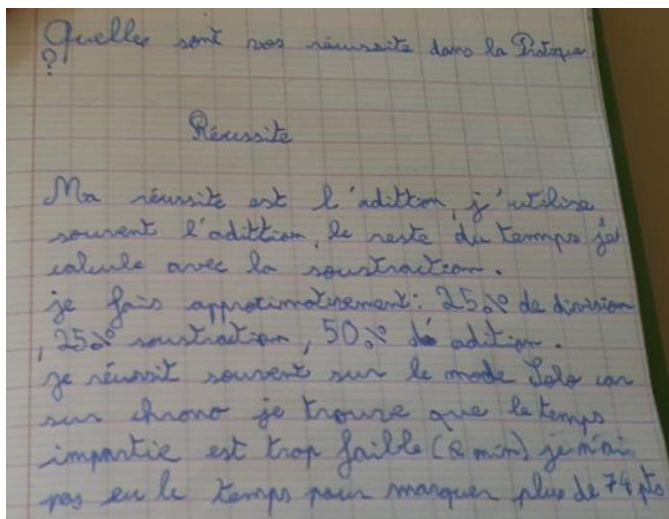 Quelles sont vos réussite dans la Pratique
?
Réussite
Ma réussite est l'adittion, j'utilise
souvent l'adittion, le reste du temmps je
calcule avec la soustraction.
je fais approximativement : 25% de division
, 25% soustraction, 50% adition.
je réussit souvent sur le mode Solo car
sur chrono je trouve que le temps
impartie est trop faible (2 min) je n'ai
pas eu le temps pour marquer plus de 74 pts